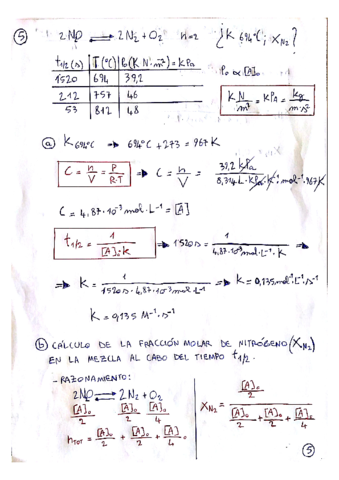 ⑤ 2NO ⇌ 2N₂ + O₂ n=2 ¿K 694°C ; X_N₂?
t1/2 (s) | T (°C) | P₀ (KN·m²) = KPa
1520 | 694 | 39,2
212 | 757 | 46
53 | 812 | 48
P₀ ∝ [A]₀
KN/m² = KPA = kg/m·s²
ⓐ K 694°C → 694°C + 273 = 967 K
C = n/V = P/R·T → C = n/V = 39,2 KPa / 8,314 L·KPa·K⁻¹·mol⁻¹·967K
C = 4,87·10⁻³ mol·L⁻¹ = [A]
t1/2 = 1/[A]₀·K → 1520 s = 1/4,87·10⁻³ mol·L⁻¹·K →
→ K = 1/1520 s·4,87·10⁻³ mol·L⁻¹ → K = 0,135 mol⁻¹·L·s⁻¹
K = 0,135 M⁻¹·s⁻¹
ⓑ CÁLCULO DE LA FRACCIÓN MOLAR DE NITRÓGENO (X_N₂)
EN LA MEZCLA AL CABO DEL TIEMPO t1/2.
- RAZONAMIENTO:
2NO ⇌ 2N₂ + O₂
[A]₀/2 [A]₀/2 [A]₀/4
n_TOT = [A]₀/2 + [A]₀/2 + [A]₀/4
X_N₂ = [A]₀/2 / [A]₀/2 + [A]₀/2 + [A]₀/4
⑤